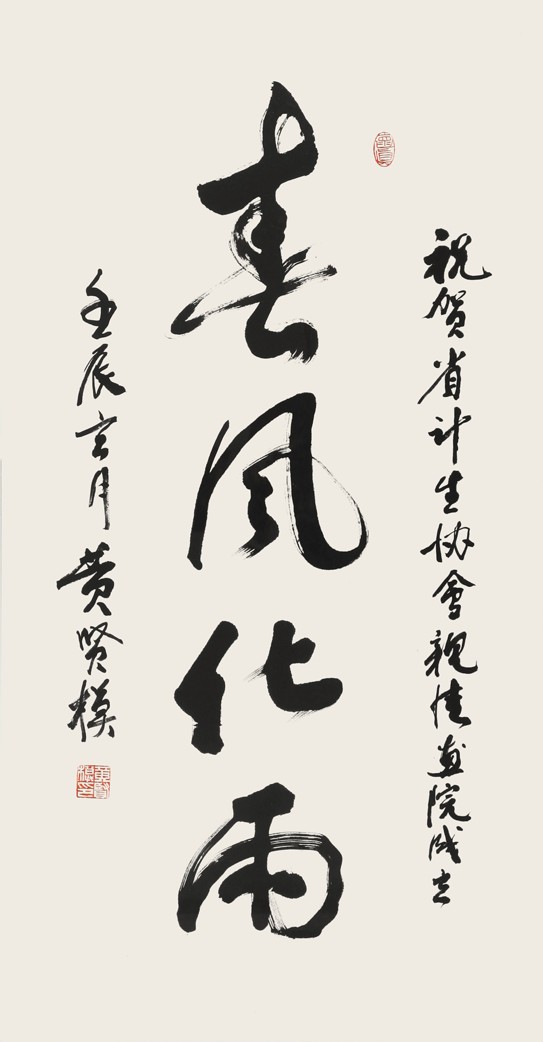 祝贺省计生协會亲情画院成立
春风化雨
壬辰玄月黄贤模